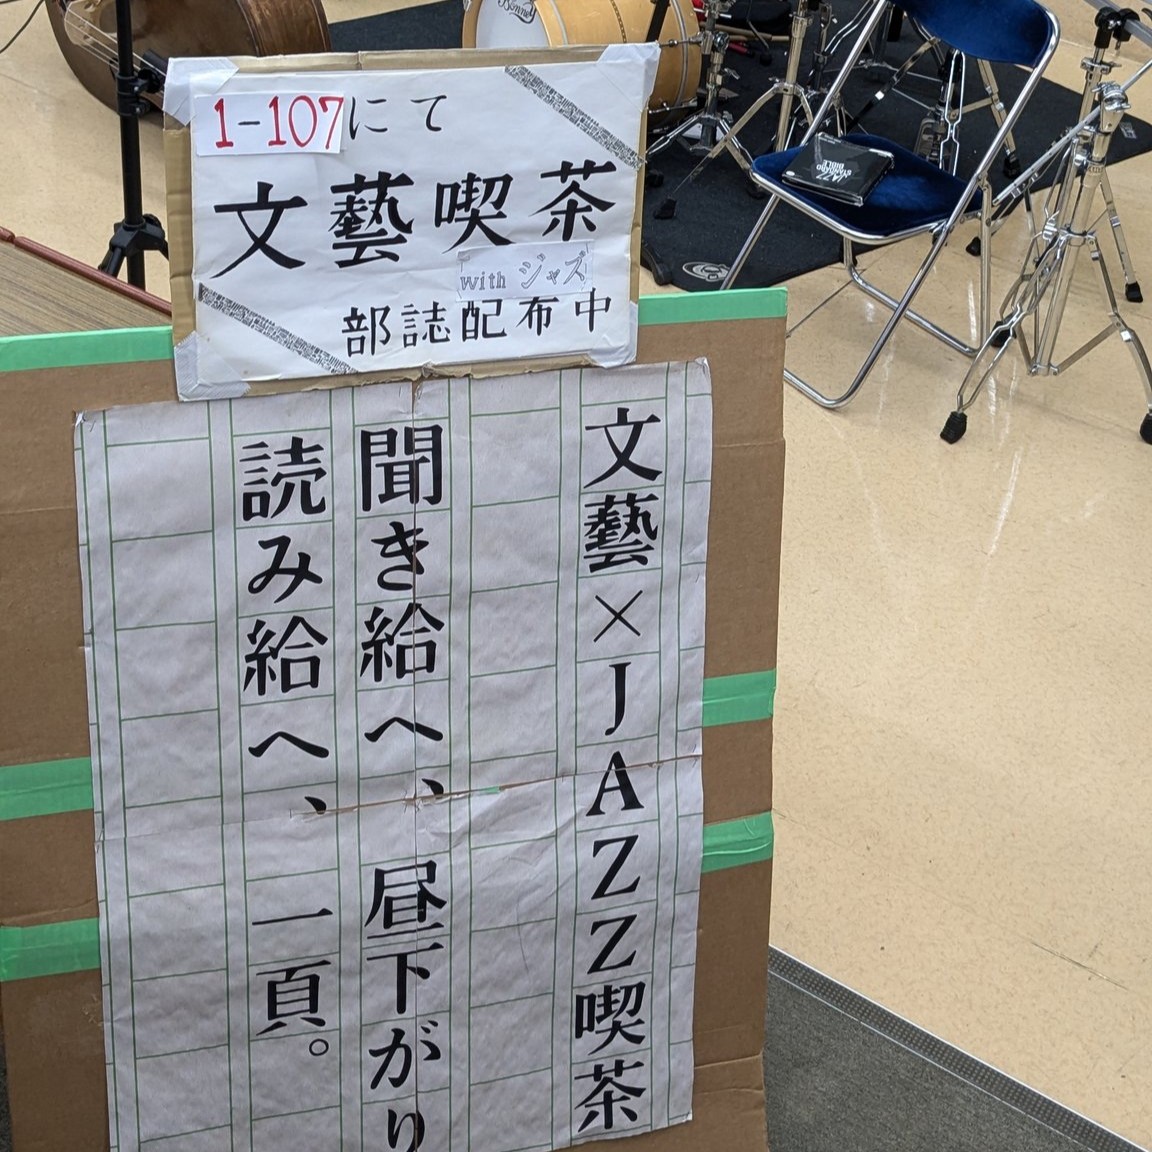 1-107にて
文藝喫茶
with ジャズ
部誌配布中
文藝×JAZZ喫茶
聞き給へ、昼下がり
読み給へ、一頁。
JAZZ
STANDARD
BIBLE